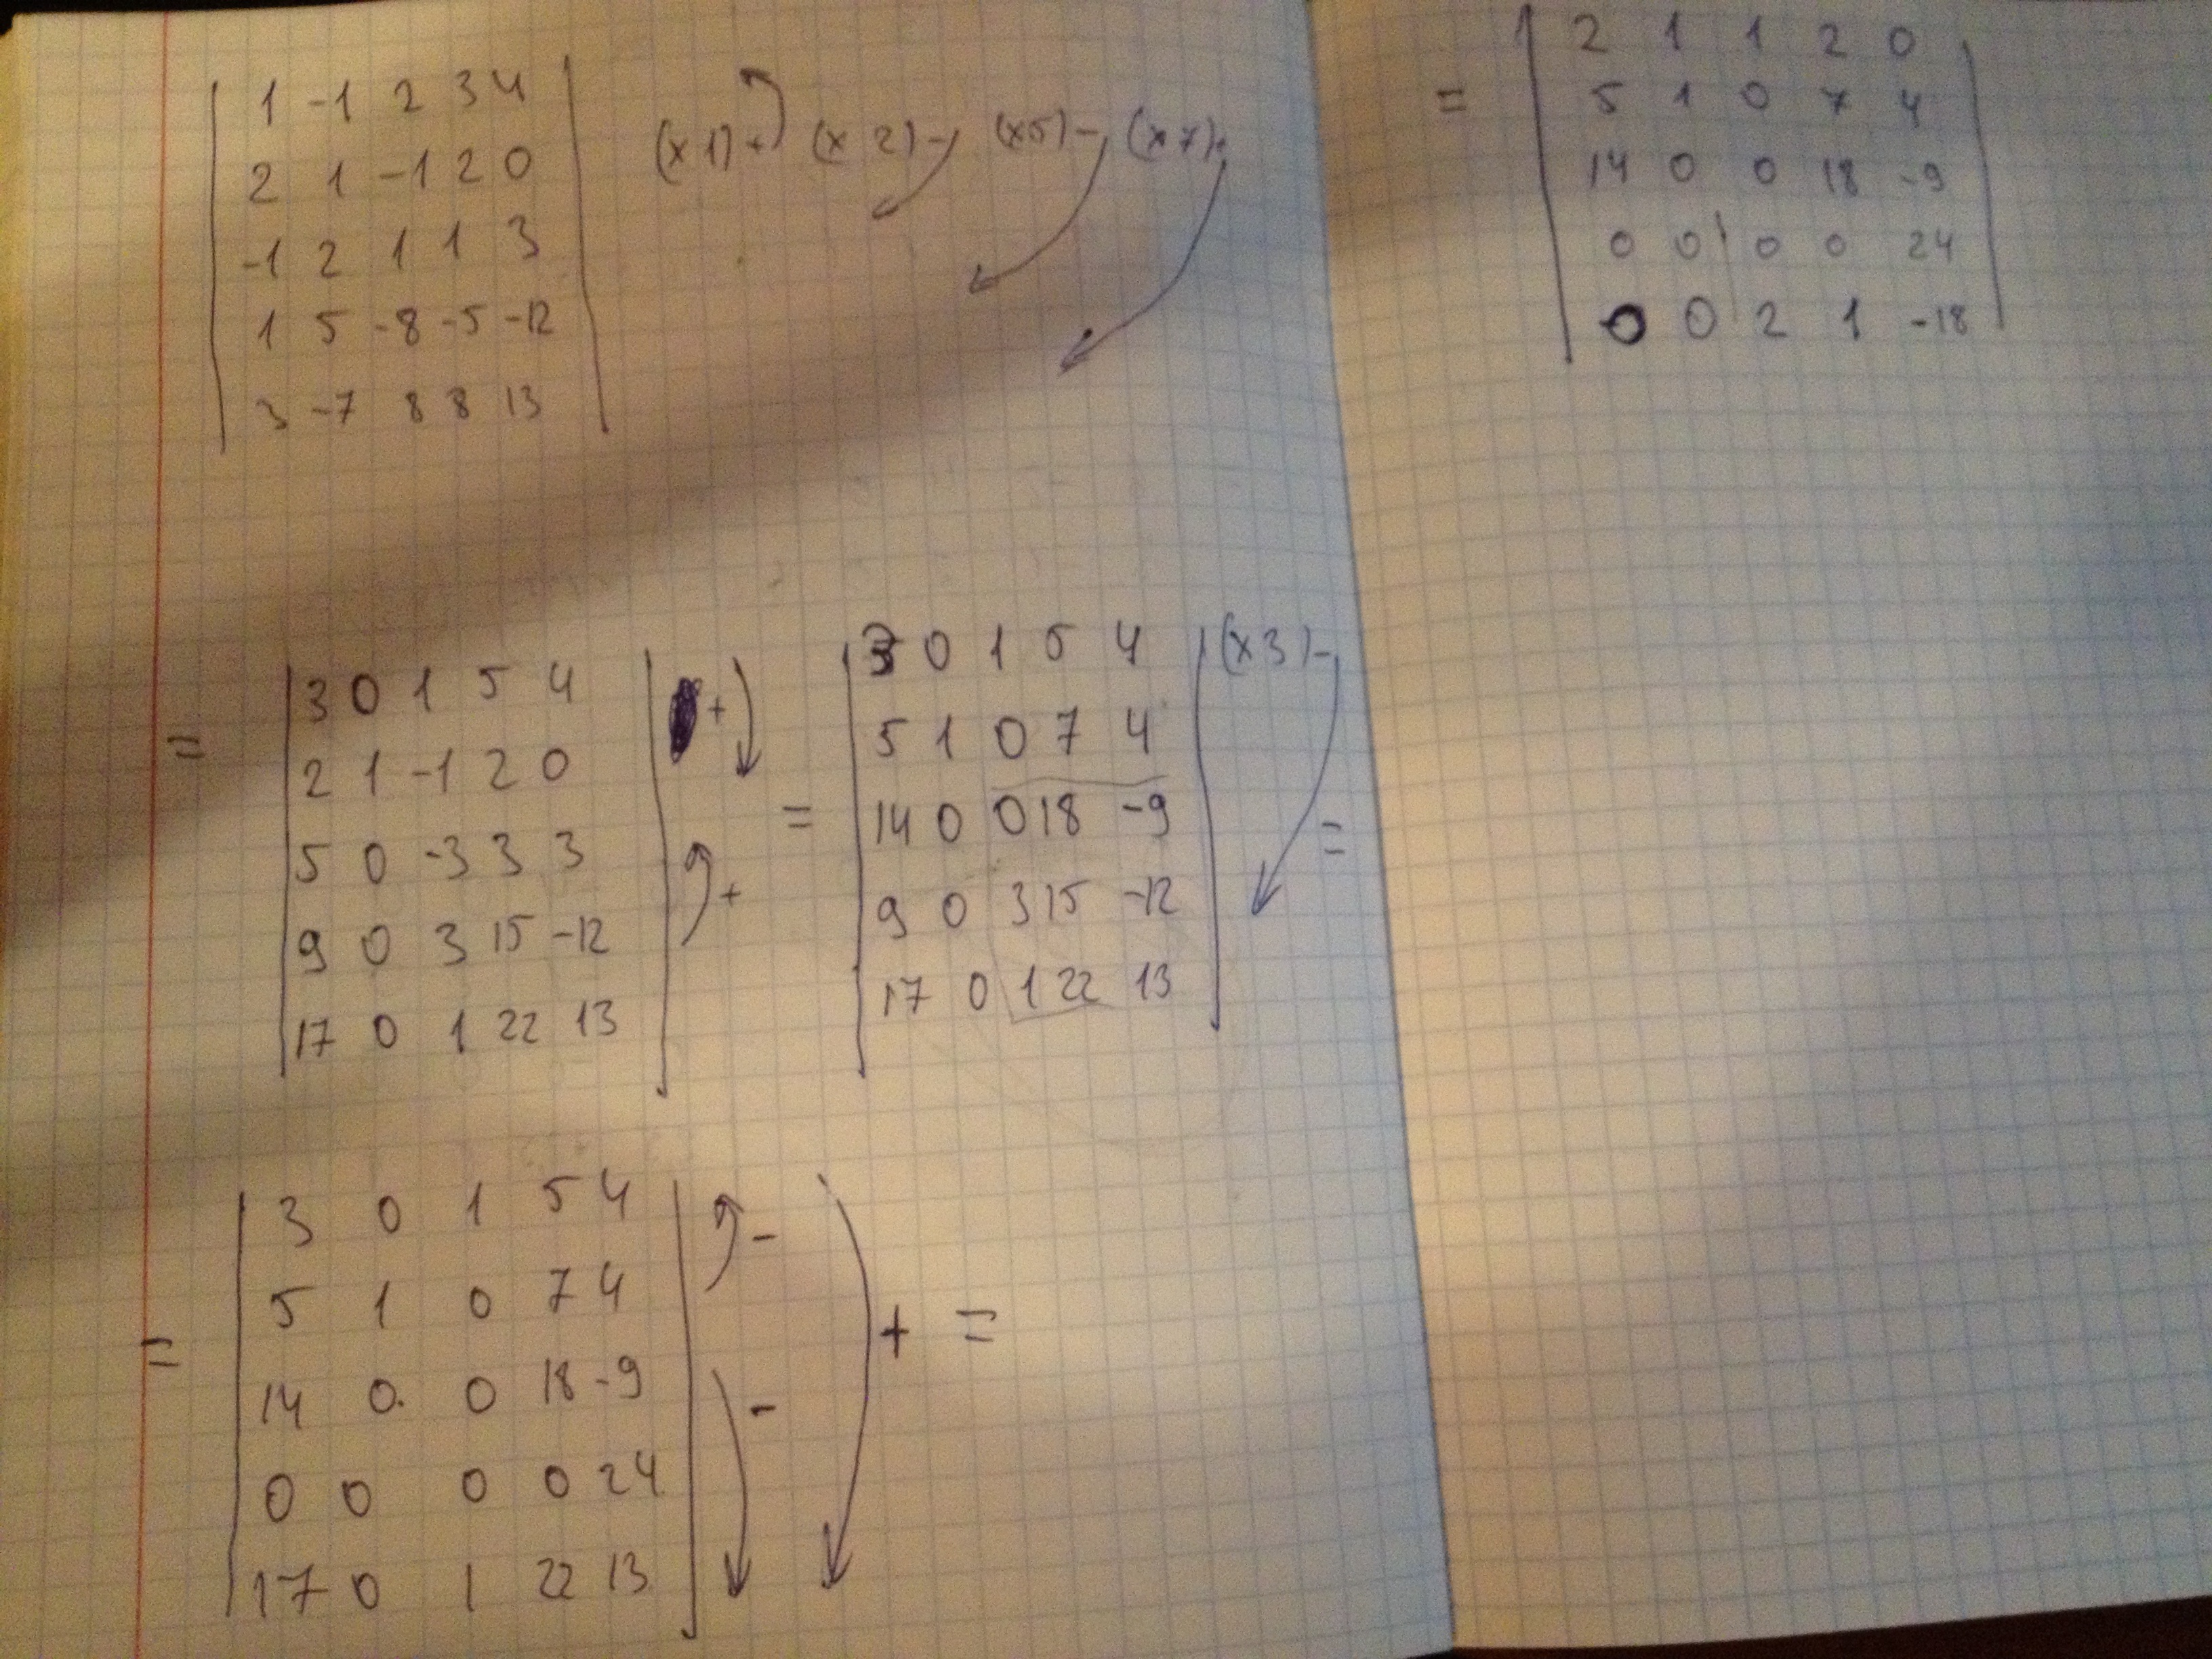 1 -1 2 3 4
2 1 -1 2 0 (x 1) + (x 2) - (x5) - (x 7)+
-1 2 1 1 3
1 5 -8 -5 -12
3 -7 8 8 13
= 3 0 1 5 4
2 1 -1 2 0 +
5 0 -3 3 3
9 0 3 15 -12 +
17 0 1 22 13
= 3 0 1 5 4 (x 3) -
5 1 0 7 4
14 0 0 18 -9 =
9 0 3 15 -12
17 0 1 22 13
= 3 0 1 5 4 -
5 1 0 7 4
14 0 0 18 -9 - + =
0 0 0 0 24
17 0 1 22 13
= 2 1 1 2 0
5 1 0 7 4
14 0 0 18 -9
0 0 0 0 24
0 0 2 1 -18